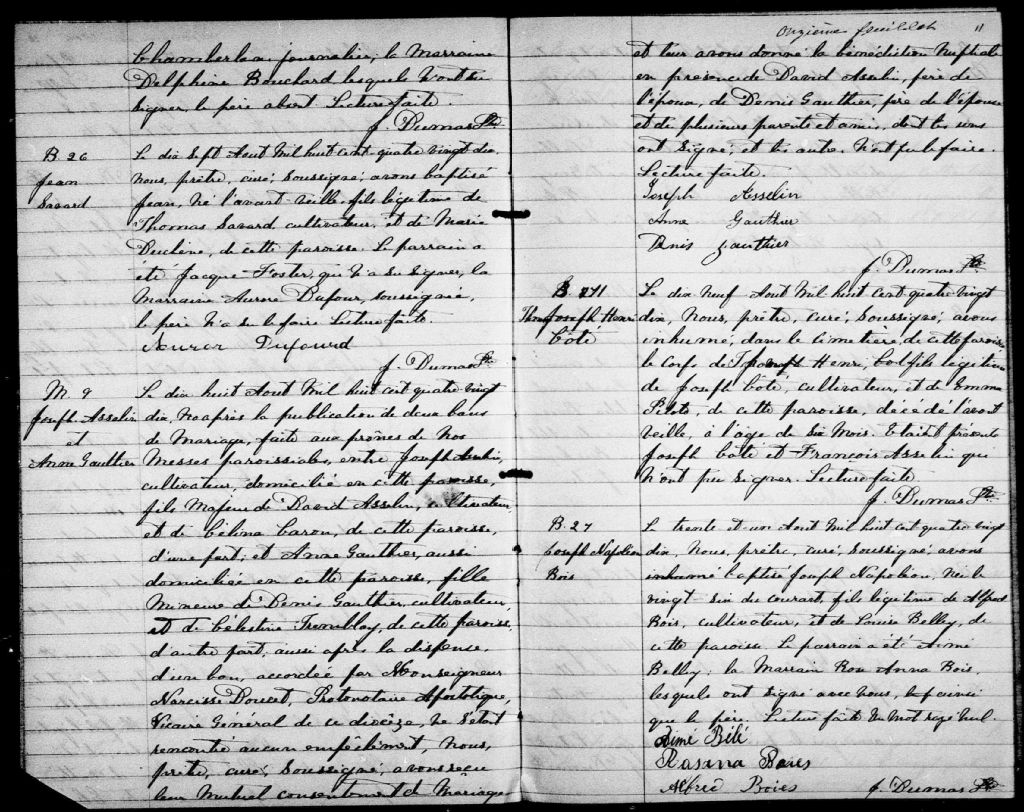 Chamberlan journalier, la Marraine
Delphine Bouchard lesquels n'ont su
signer, le père absent. Lecture faite.
J. Dumas Ptre
B 26
Jean
Savard
Le dix sept Aout Mil huit cent quatre vingt dix,
nous, prêtre, curé, soussigné, avons baptisé
Jean, né l'avant-veille, fils légitime de
Thomas Savard, cultivateur, et de Marie
Duchêne, de cette paroisse. Le parrain a
été Jacque Foster, qui n'a su signer, la
Marraine Aurore Dufour, soussignée,
le père n'a su le faire. Lecture faite
Auror Dufourd
J. Dumas Ptre
M. 9
Joseph Asselin
et
Anne Gaulthier
Le dix huit Aout Mil huit cent quatre vingt
dix, après la publication de deux bans
de Mariage, faite aux prônes de nos
Messes paroissiales, entre Joseph Asselin,
cultivateur, domicilié en cette paroisse,
fils Majeur de David Asselin, cultivateur,
et de Célina Caron, de cette paroisse,
d'une part; et Anne Gauthier, aussi
domiciliée en cette paroisse, fille
Mineure de Denis Gauthier, cultivateur,
et de Célestine Tremblay, de cette paroisse,
d'autre part, aussi après la dispense,
d'un ban, accordée par Monseigneur
Narcisse Doucet, Protonotaire Apostolique,
Vicaire Général de ce diocèze, ne s'étant
rencontré aucun empêchement, Nous,
prêtre, curé, soussigné, avons reçu
leur Mutuel consentement de Mariage
Onzième feuillet 11
et leur avons donné la bénédiction Nuptiale
en présence de David Asselin, père de
l'époux, de Denis Gauthier, père de l'épouse
et de plusieurs parents et amis, dont les uns
ont signé, et les autres n'ont pu le faire.
Lecture faite.
Joseph Asselin
Anne Gauthier
Denis Gauthier
J. Dumas Ptre
Joseph Henri
Coté
Le dix neuf Aout Mil huit cent quatre vingt
dix, Nous, prêtre, curé, soussigné, avons
inhumé, dans le cimetière, de cette paroisse
le corps de Joseph Henri, fils légitime
de Joseph Coté, cultivateur, et de Emma
Pilote, de cette paroisse, décédé l'avant
veille, à l'age de six Mois. Etaient présents
Joseph Coté et François Asselin qui
n'ont pu signer. Lecture faite
J. Dumas Ptre
B. 27
Joseph Napoléon
Bois
Le trente et un Aout Mil huit cent quatre vingt
dix, Nous, prêtre, curé, soussigné, avons
inhumé baptisé Joseph Napoléon, né le
vingt-six du courant, fils légitime de Alfred
Bois, cultivateur, et de Louise Belley, de
cette paroisse. Le parrain a été Aimé
Belley; la Marraine Anna Bois,
lesquels ont signé avec nous,
que le père. Lecture faite Un mot rayé nul.
Aimé Bélé
Rosanna Boies
Alfred Boies J. Dumas Ptre